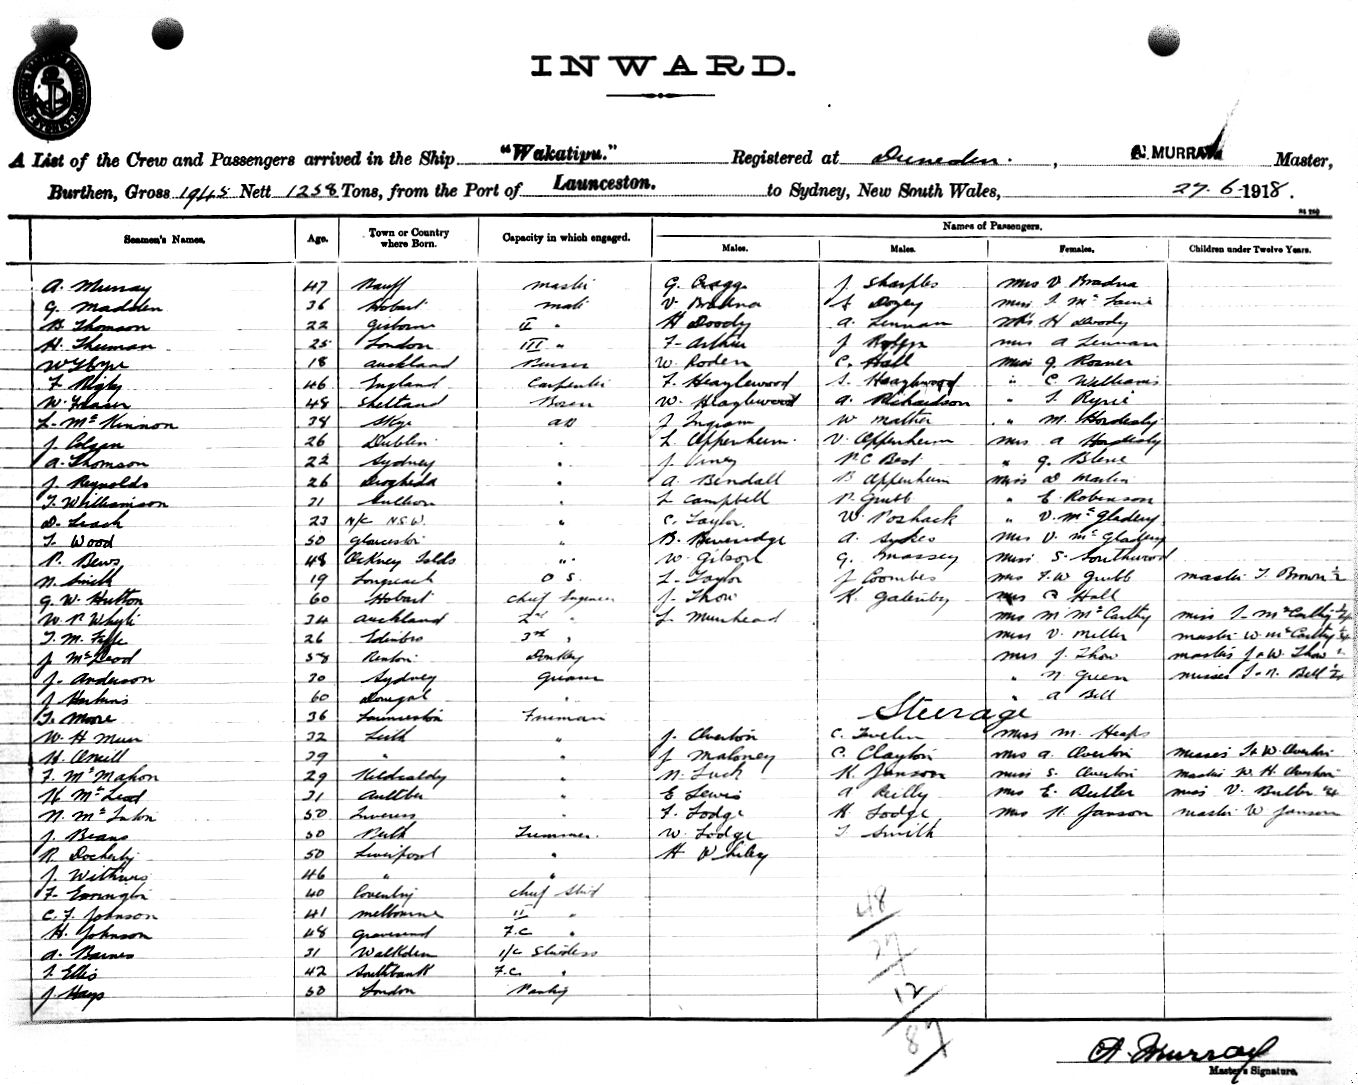 INWARD.
A List of the Crew and Passengers arrived in the Ship "Wakatipu." Registered at Dunedin. , A. MURRAY Master,
Burthen, Gross 1945 Nett 1258 Tons, from the Port of Launceston. to Sydney, New South Wales, 27.6-1918.
Names of Passengers.
Seamen's Names. Age. Town or Country where Born. Capacity in which engaged. Males. Males. Females. Children under Twelve Years.
A. Murray 47 Banff master G. Cragg J Sharples mrs V Bradna
G. Madden 36 Hobart mate V Bradna Dozey miss
B. Thomson 22 Gisborne II " H Doody A. Lennam mrs H Doody
H. 25 London III " F- Arthur J mrs A Lennam
18 Auckland W. Roden C. Hall miss G. Rosner
F 46 England Carpenter F. Heaylewood S. Heaylewood " C Williams
W. Fraser 48 Shetland Bosen W. Heaylewood A. Richardson "
L- McKinnon 38 Skye AB J Ingram W mather " M.
J. 26 Dublin " L Appenheim. V. Appenheim mrs A
A. Thomson 22 Sydney " J. P.C Best " G.
J. Reynolds 26 Drogheda " A Bendall B Appenheim miss D Martin
T. Williamson 31 " L Campbell P. Grubb " E. Robinson
D. Leach 23 N/C N.S.W. " C. Taylor. W. Poshack " V. McGladery
T. Wood 50 Gloucester " B. Beveridge A. Sykes mrs V. McGladery
P. Bews 48 Orkney Islds " W Gibson G. Massey miss S. Southwood
N. Smith 19 Longreach O S. L. Taylor J Coombes mrs F.W Grubb master T. Brown
G. W. Hutton 60 Hobart Chief Engineer J. Thow K. Galenby mrs C Hall
W. P. Whyte 34 Auckland 2nd " L Muirhead mrs M McCarthy miss McCarthy
T. M. Fyfe 26 Edinbro 3rd " miss V. Miller master W McCarthy
J McLeod 58 Renton Donkey mrs J. Thow masters J & W. Thow
J. Anderson 30 Sydney Greaser " N Green misses Bell
J 60 Donegal " " A Bell
T. Moore 36 Launceston Fireman Steerage
W. H Muir 32 Leith " J. Overton C. miss M. Heaps
H. Oneill 39 " " J Maloney C. Clayton mrs A. Overton misses & W. Overton
F. McMahon 29 " N. Luck K. Janson miss S. Overton master W. H. Overton
McLeod 31 " E Lewis A Reilly mrs E. Butter miss V. Butter
N. 50 Inverness " F. Lodge K Lodge mrs K. Janson master W Janson
J. Beans 50 Perth Trimmer. W. Lodge T Smith
R. Docherty 50 Liverpool " H Whiley
J. Withers 46 " "
F- Errington 40 Coventry Chief Stwd
C. F. Johnson 41 Melbourne II " 48
H. Johnson 48 Gravesend F.C " 27
A. Barnes 31 Walkden 1/C Stwdess
F. Ellis 42 Southbank F.C. " 12
J Hays 50 London Pantry 87
A. Murray
Master's Signature.